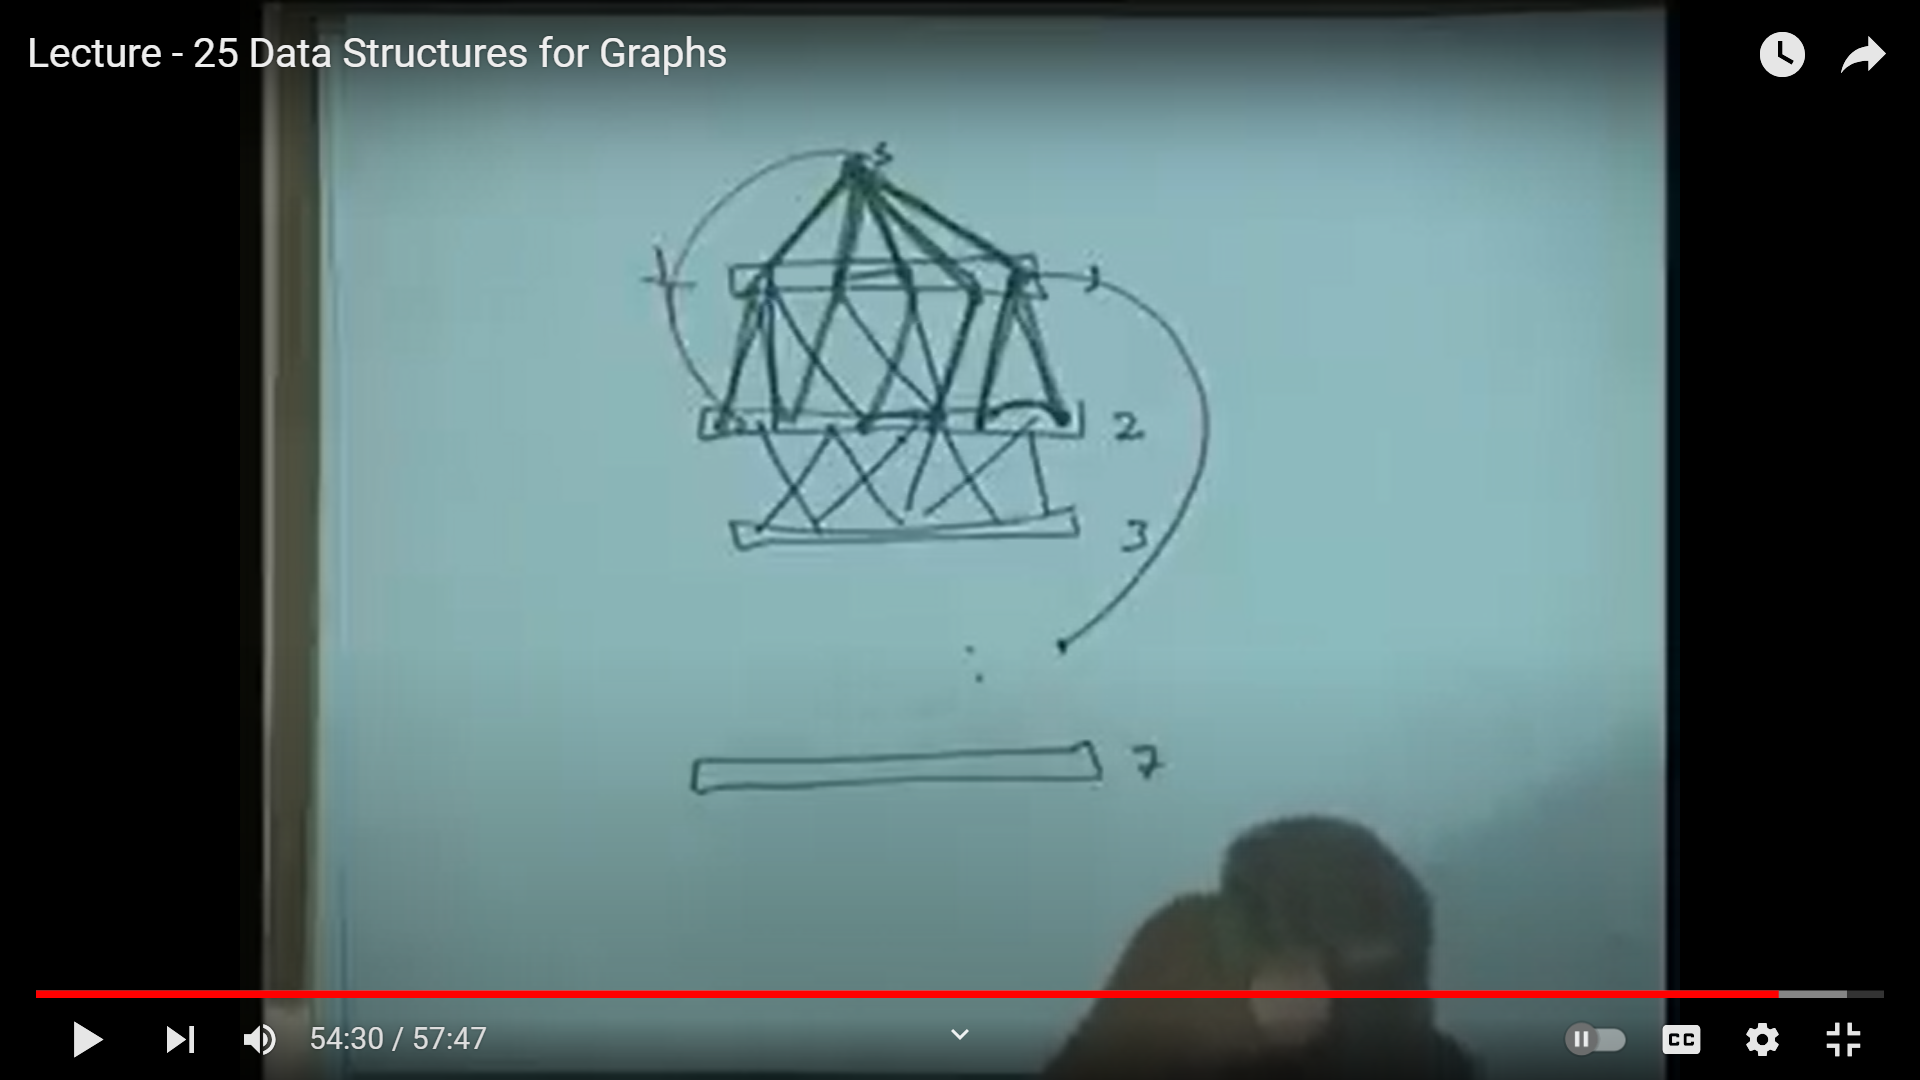 Lecture - 25 Data Structures for Graphs
s
1
2
3
7
54:30 / 57:47
CC